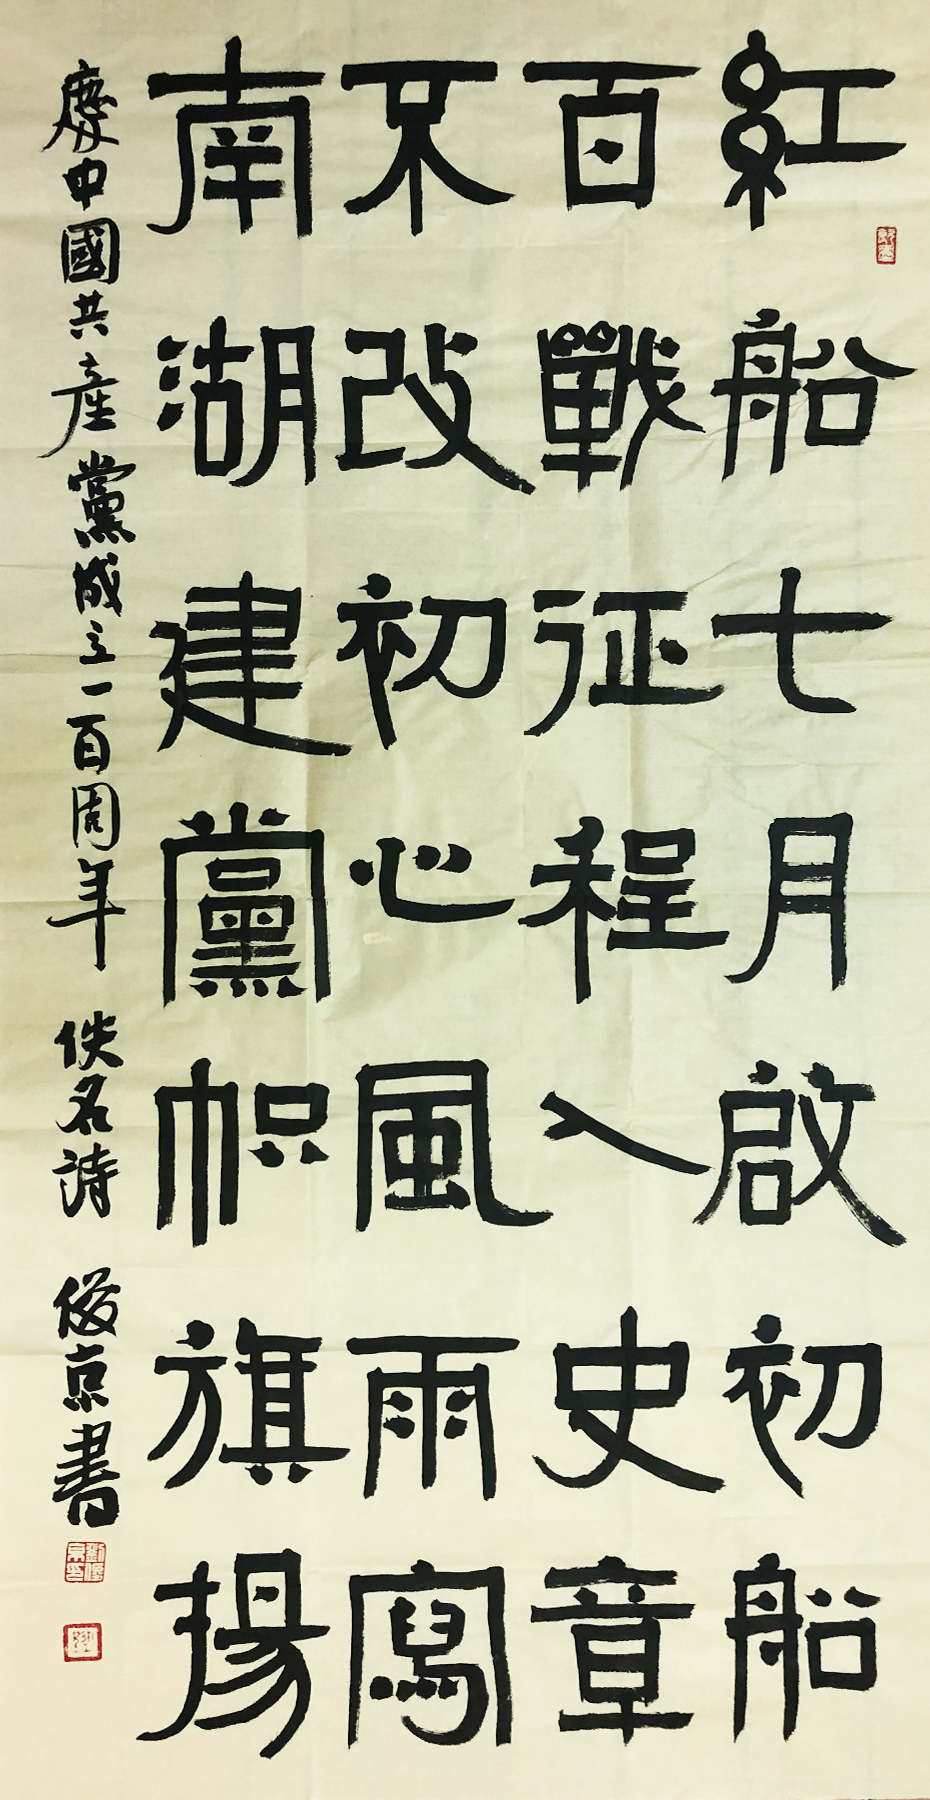 紅船七月啟初船
百戰征程入史章
不改初心風雨寫
南湖建黨幟旗揚
慶中國共產黨成立一百周年 佚名詩 俊京書